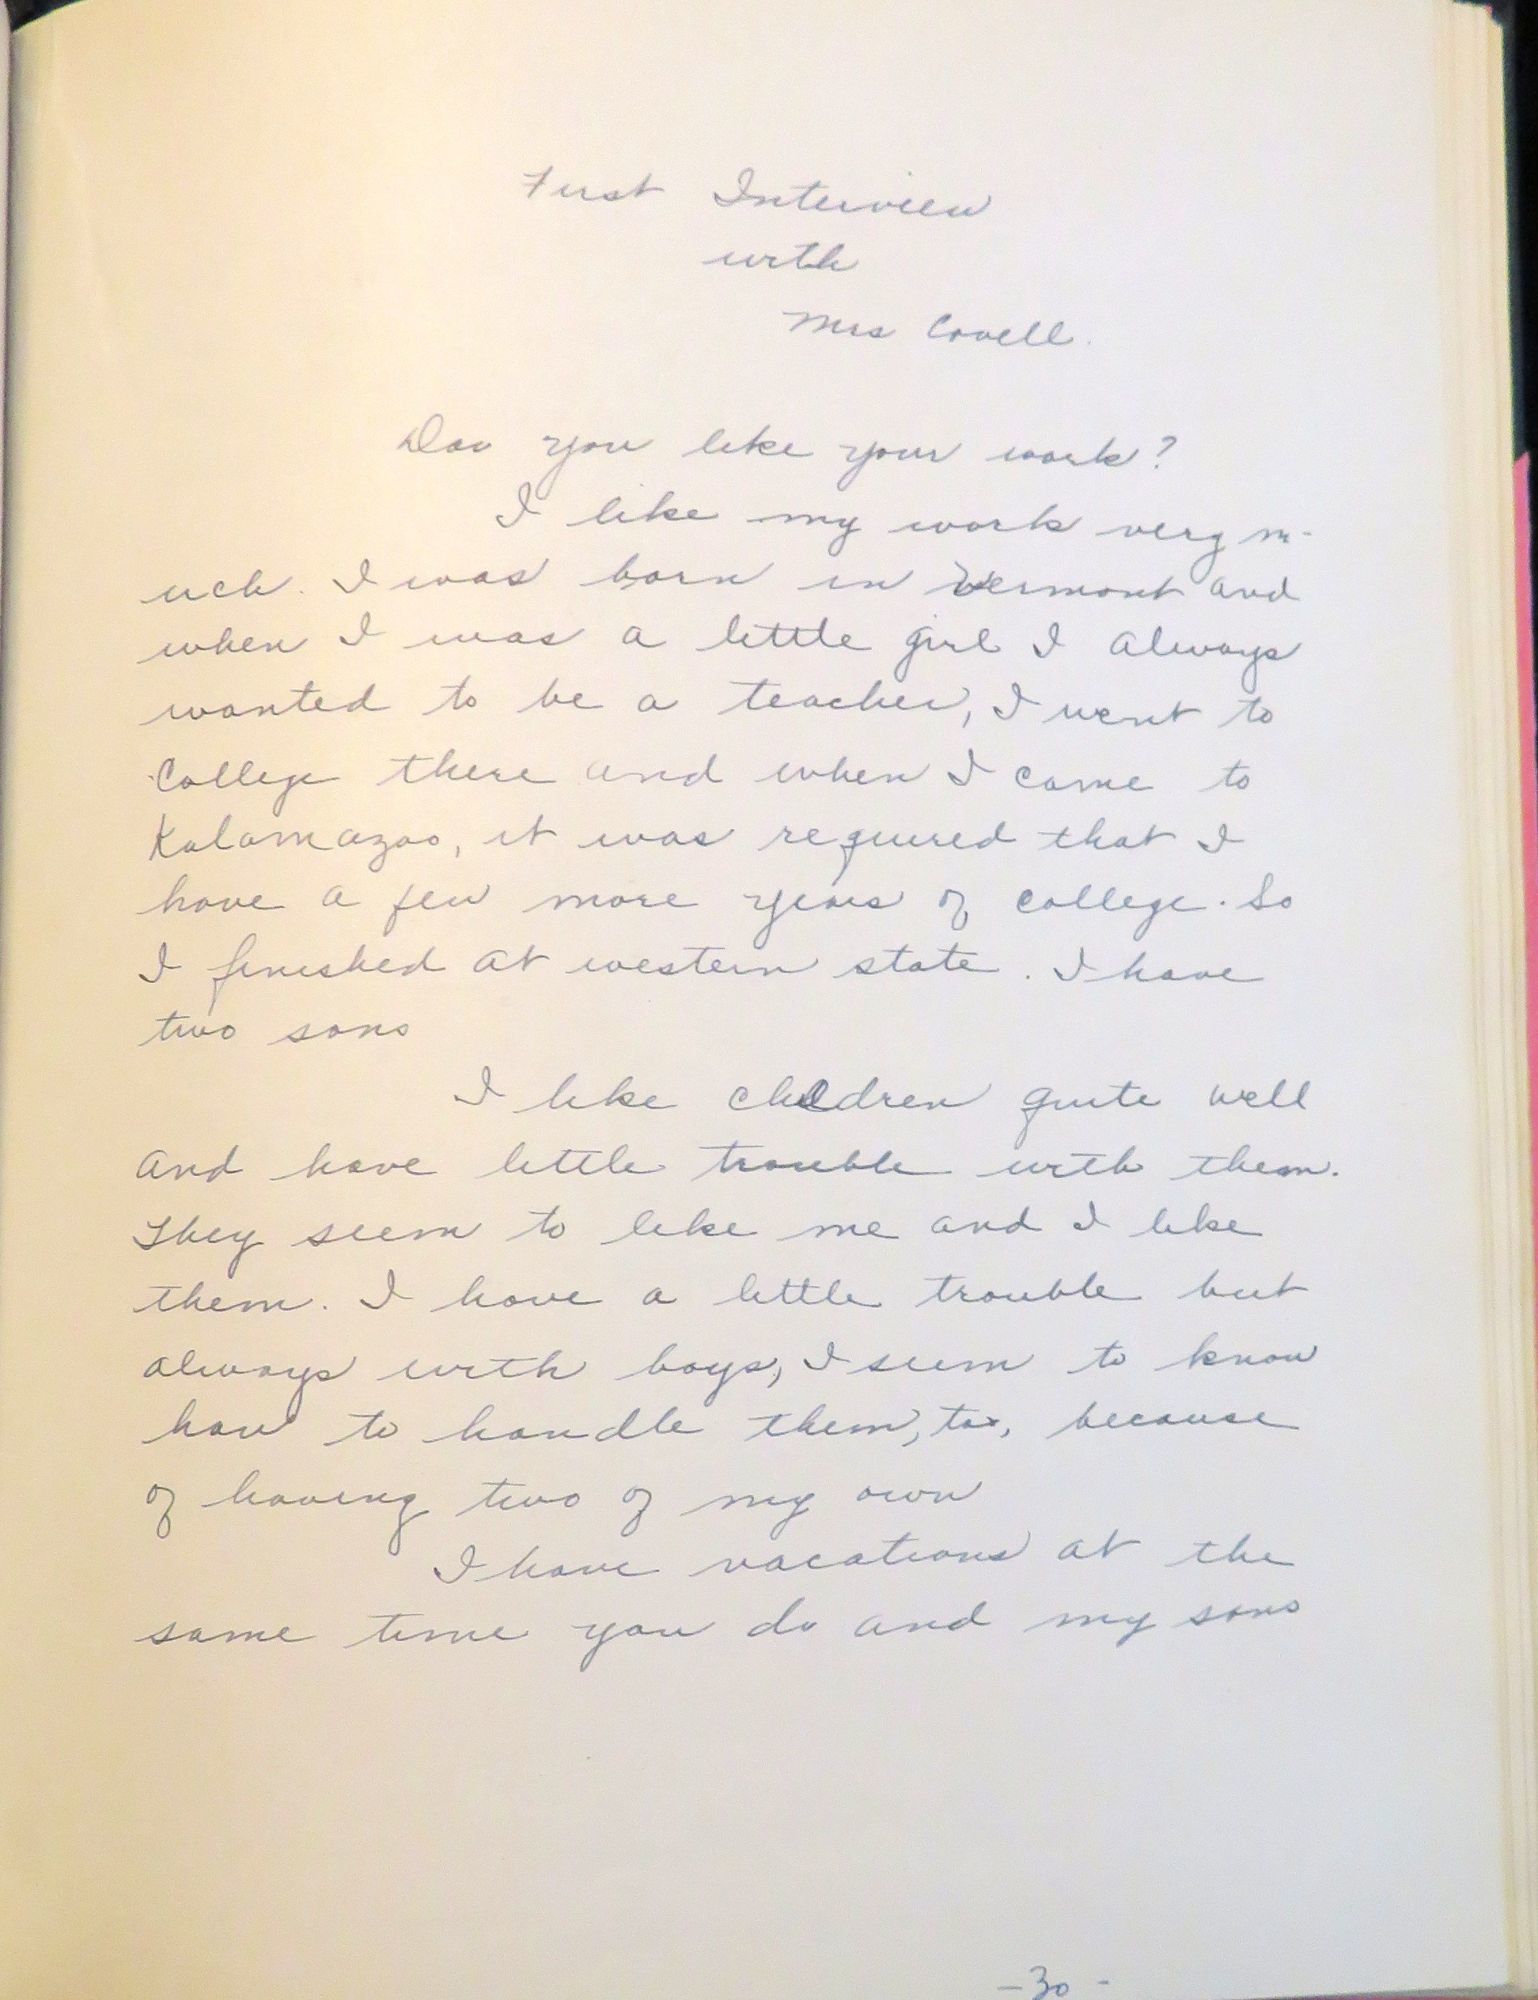 First Interview
with
Mrs Covell.
Doo you like your work?
I like my work very m-
uch. I was born in Vermont and
when I was a little girl I always
wanted to be a teacher, I went to
College there and when I came to
Kalamazoo, it was required that I
have a few more years of college. So
I finished at western state. I have
two sons
I like children quite well
and have little trouble with them.
They seem to like me and I like
them. I have a little trouble but
always with boys, I seem to know
how to handle them, too, because
of having two of my own
I have vacations at the
same time you do and my sons
-30-